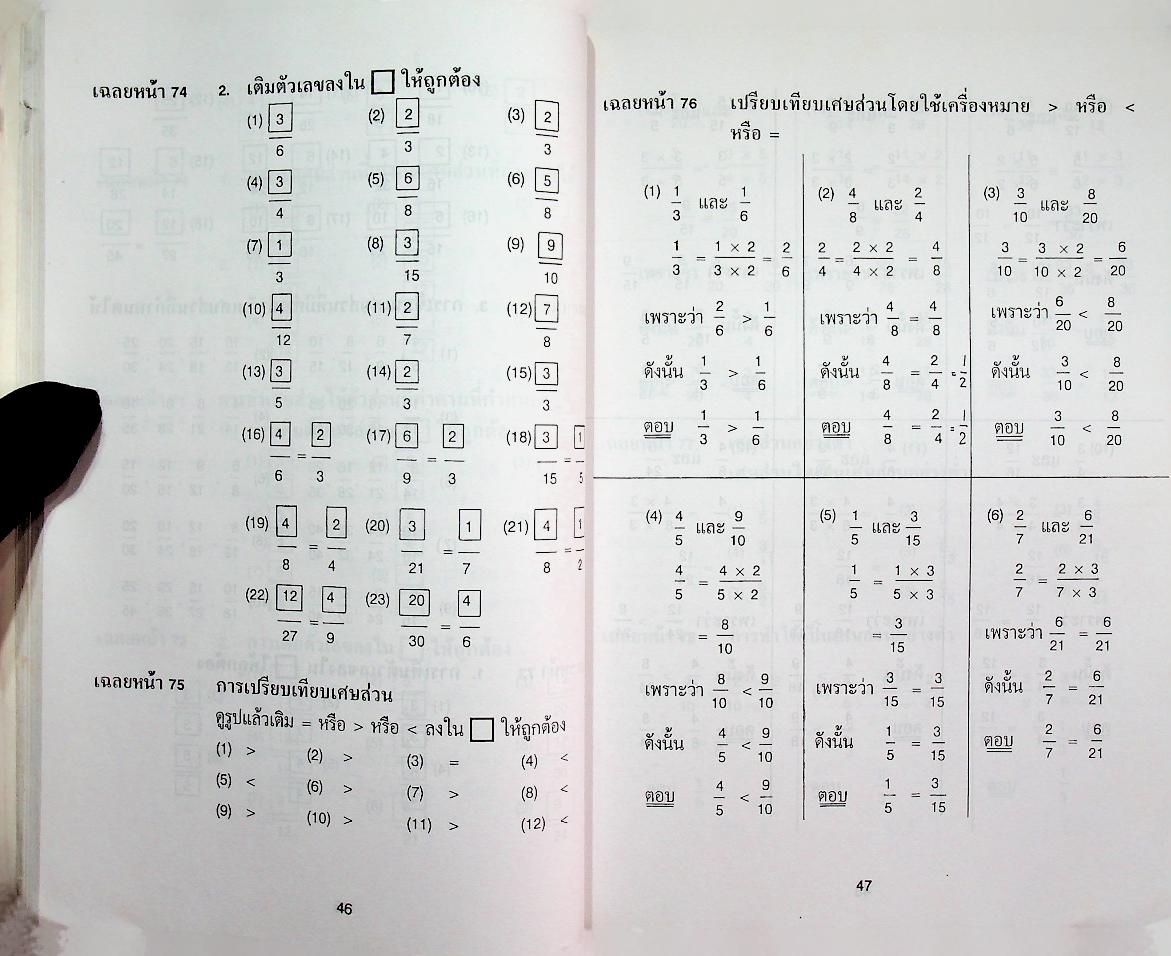 เฉลยหน้า 74 2. เติมตัวเลขลงใน □ ให้ถูกต้อง
(1) 3/6 (2) 2/3 (3) 2/3
(4) 3/4 (5) 6/8 (6) 5/8
(7) 1/3 (8) 3/15 (9) 9/10
(10) 4/12 (11) 2/7 (12) 7/8
(13) 3/5 (14) 2/3 (15) 3/3
(16) 4/6 = 2/3 (17) 6/9 = 2/3 (18) 3/15 = 1/5
(19) 4/8 = 2/4 (20) 3/21 = 1/7 (21) 4/8 = 1/2
(22) 12/27 = 4/9 (23) 20/30 = 4/6
เฉลยหน้า 75 การเปรียบเทียบเศษส่วน
ดูรูปแล้วเติม = หรือ > หรือ < ลงใน □ ให้ถูกต้อง
(1) > (2) > (3) = (4) <
(5) < (6) > (7) > (8) <
(9) > (10) > (11) > (12) <
46
เฉลยหน้า 76 เปรียบเทียบเศษส่วนโดยใช้เครื่องหมาย > หรือ <
หรือ =
(1) 1/3 และ 1/6
1/3 = 1 × 2/3 × 2 = 2/6
เพราะว่า 2/6 > 1/6
ดังนั้น 1/3 > 1/6
ตอบ 1/3 > 1/6
(2) 4/8 และ 2/4
2/4 = 2 × 2/4 × 2 = 4/8
เพราะว่า 4/8 = 4/8
ดังนั้น 4/8 = 2/4 = 1/2
ตอบ 4/8 = 2/4 = 1/2
(3) 3/10 และ 8/20
3/10 = 3 × 2/10 × 2 = 6/20
เพราะว่า 6/20 < 8/20
ดังนั้น 3/10 < 8/20
ตอบ 3/10 < 8/20
(4) 4/5 และ 9/10
4/5 = 4 × 2/5 × 2
= 8/10
เพราะว่า 8/10 < 9/10
ดังนั้น 4/5 < 9/10
ตอบ 4/5 < 9/10
(5) 1/5 และ 3/15
1/5 = 1 × 3/5 × 3
= 3/15
เพราะว่า 3/15 = 3/15
ดังนั้น 1/5 = 3/15
ตอบ 1/5 = 3/15
(6) 2/7 และ 6/21
2/7 = 2 × 3/7 × 3
เพราะว่า 6/21 = 6/21
ดังนั้น 2/7 = 6/21
ตอบ 2/7 = 6/21
47